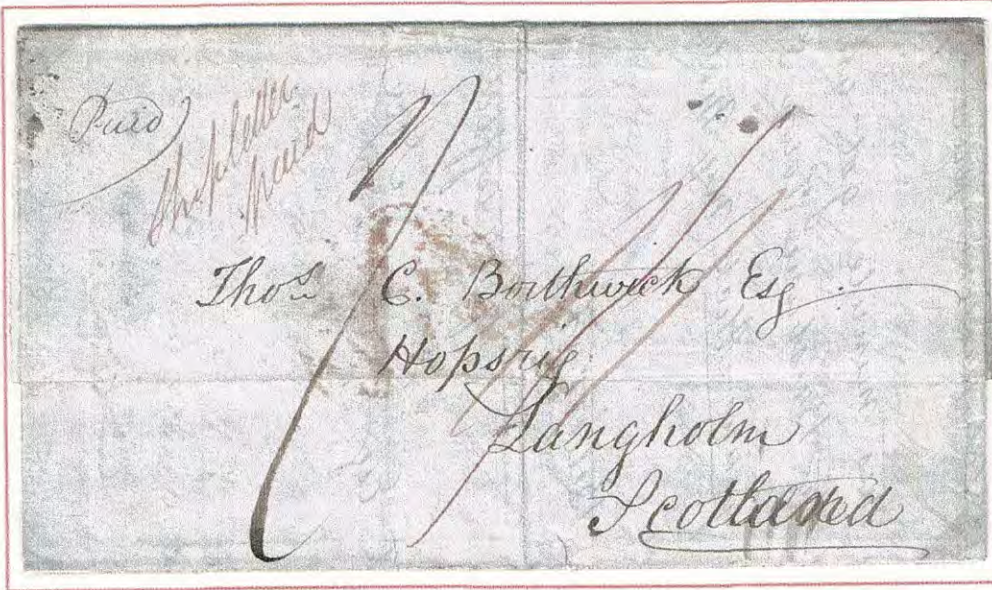 Paid
Ship letter
paid
Thos. C. Borthwick Esq
Hopsrig
Langholm
Scotland